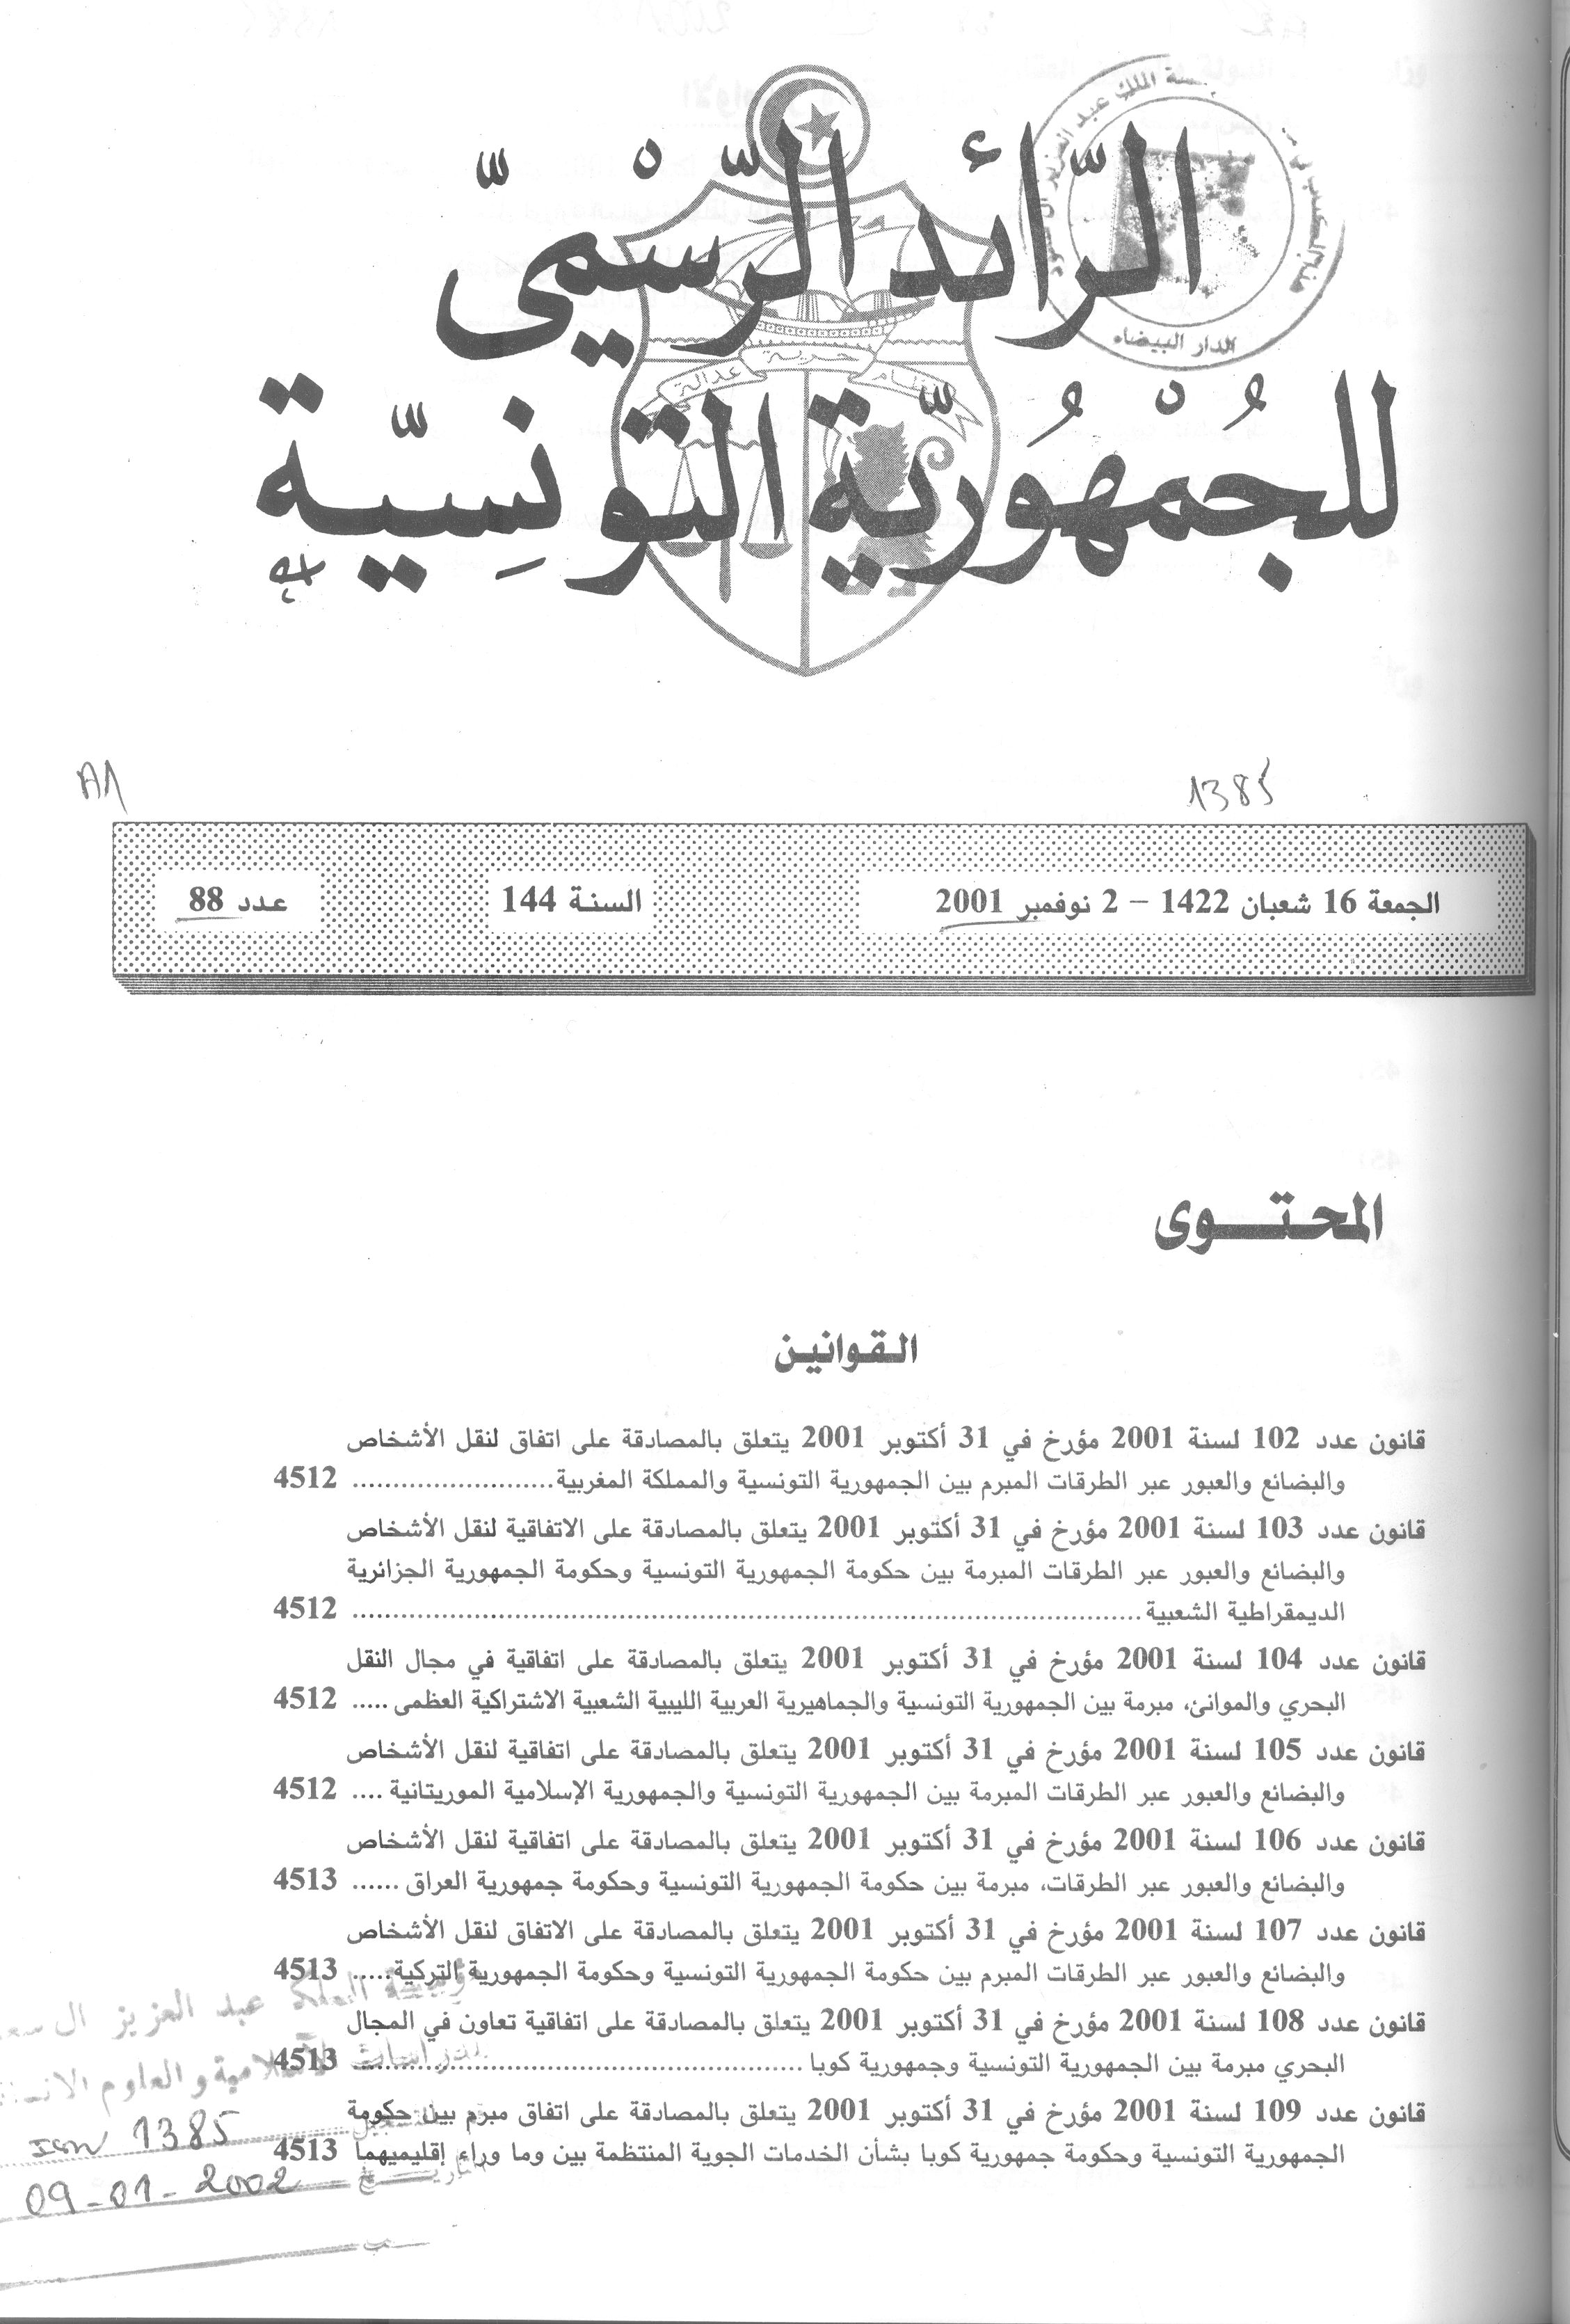 الرّائد الرّسْميّ
للجُمْهُوريّة التّونِسيّة
نظام حرية عدالة
الملك عبد العزيز آل سعود
الدار البيضاء
A1
1385
الجمعة 16 شعبان 1422 – 2 نوفمبر 2001
السنة 144
عدد 88
المحتوى
القوانين
قانون عدد 102 لسنة 2001 مؤرخ في 31 أكتوبر 2001 يتعلق بالمصادقة على اتفاق لنقل الأشخاص
والبضائع والعبور عبر الطرقات المبرم بين الجمهورية التونسية والمملكة المغربية........................ 4512
قانون عدد 103 لسنة 2001 مؤرخ في 31 أكتوبر 2001 يتعلق بالمصادقة على الاتفاقية لنقل الأشخاص
والبضائع والعبور عبر الطرقات المبرمة بين حكومة الجمهورية التونسية وحكومة الجمهورية الجزائرية
الديمقراطية الشعبية................................................................................................ 4512
قانون عدد 104 لسنة 2001 مؤرخ في 31 أكتوبر 2001 يتعلق بالمصادقة على اتفاقية في مجال النقل
البحري والموانئ، مبرمة بين الجمهورية التونسية والجماهيرية العربية الليبية الشعبية الاشتراكية العظمى ..... 4512
قانون عدد 105 لسنة 2001 مؤرخ في 31 أكتوبر 2001 يتعلق بالمصادقة على اتفاقية لنقل الأشخاص
والبضائع والعبور عبر الطرقات المبرمة بين الجمهورية التونسية والجمهورية الإسلامية الموريتانية .... 4512
قانون عدد 106 لسنة 2001 مؤرخ في 31 أكتوبر 2001 يتعلق بالمصادقة على اتفاقية لنقل الأشخاص
والبضائع والعبور عبر الطرقات، مبرمة بين حكومة الجمهورية التونسية وحكومة جمهورية العراق ...... 4513
قانون عدد 107 لسنة 2001 مؤرخ في 31 أكتوبر 2001 يتعلق بالمصادقة على الاتفاق لنقل الأشخاص
والبضائع والعبور عبر الطرقات المبرم بين حكومة الجمهورية التونسية وحكومة الجمهورية التركية..... 4513
قانون عدد 108 لسنة 2001 مؤرخ في 31 أكتوبر 2001 يتعلق بالمصادقة على اتفاقية تعاون في المجال
البحري مبرمة بين الجمهورية التونسية وجمهورية كوبا ................................................... 4513
قانون عدد 109 لسنة 2001 مؤرخ في 31 أكتوبر 2001 يتعلق بالمصادقة على اتفاق مبرم بين حكومة
الجمهورية التونسية وحكومة جمهورية كوبا بشأن الخدمات الجوية المنتظمة بين وما وراء إقليميهما 4513
الملك عبد العزيز آل سعو
الإسلامية والعلوم
التسجيل 1385
09-01-2002